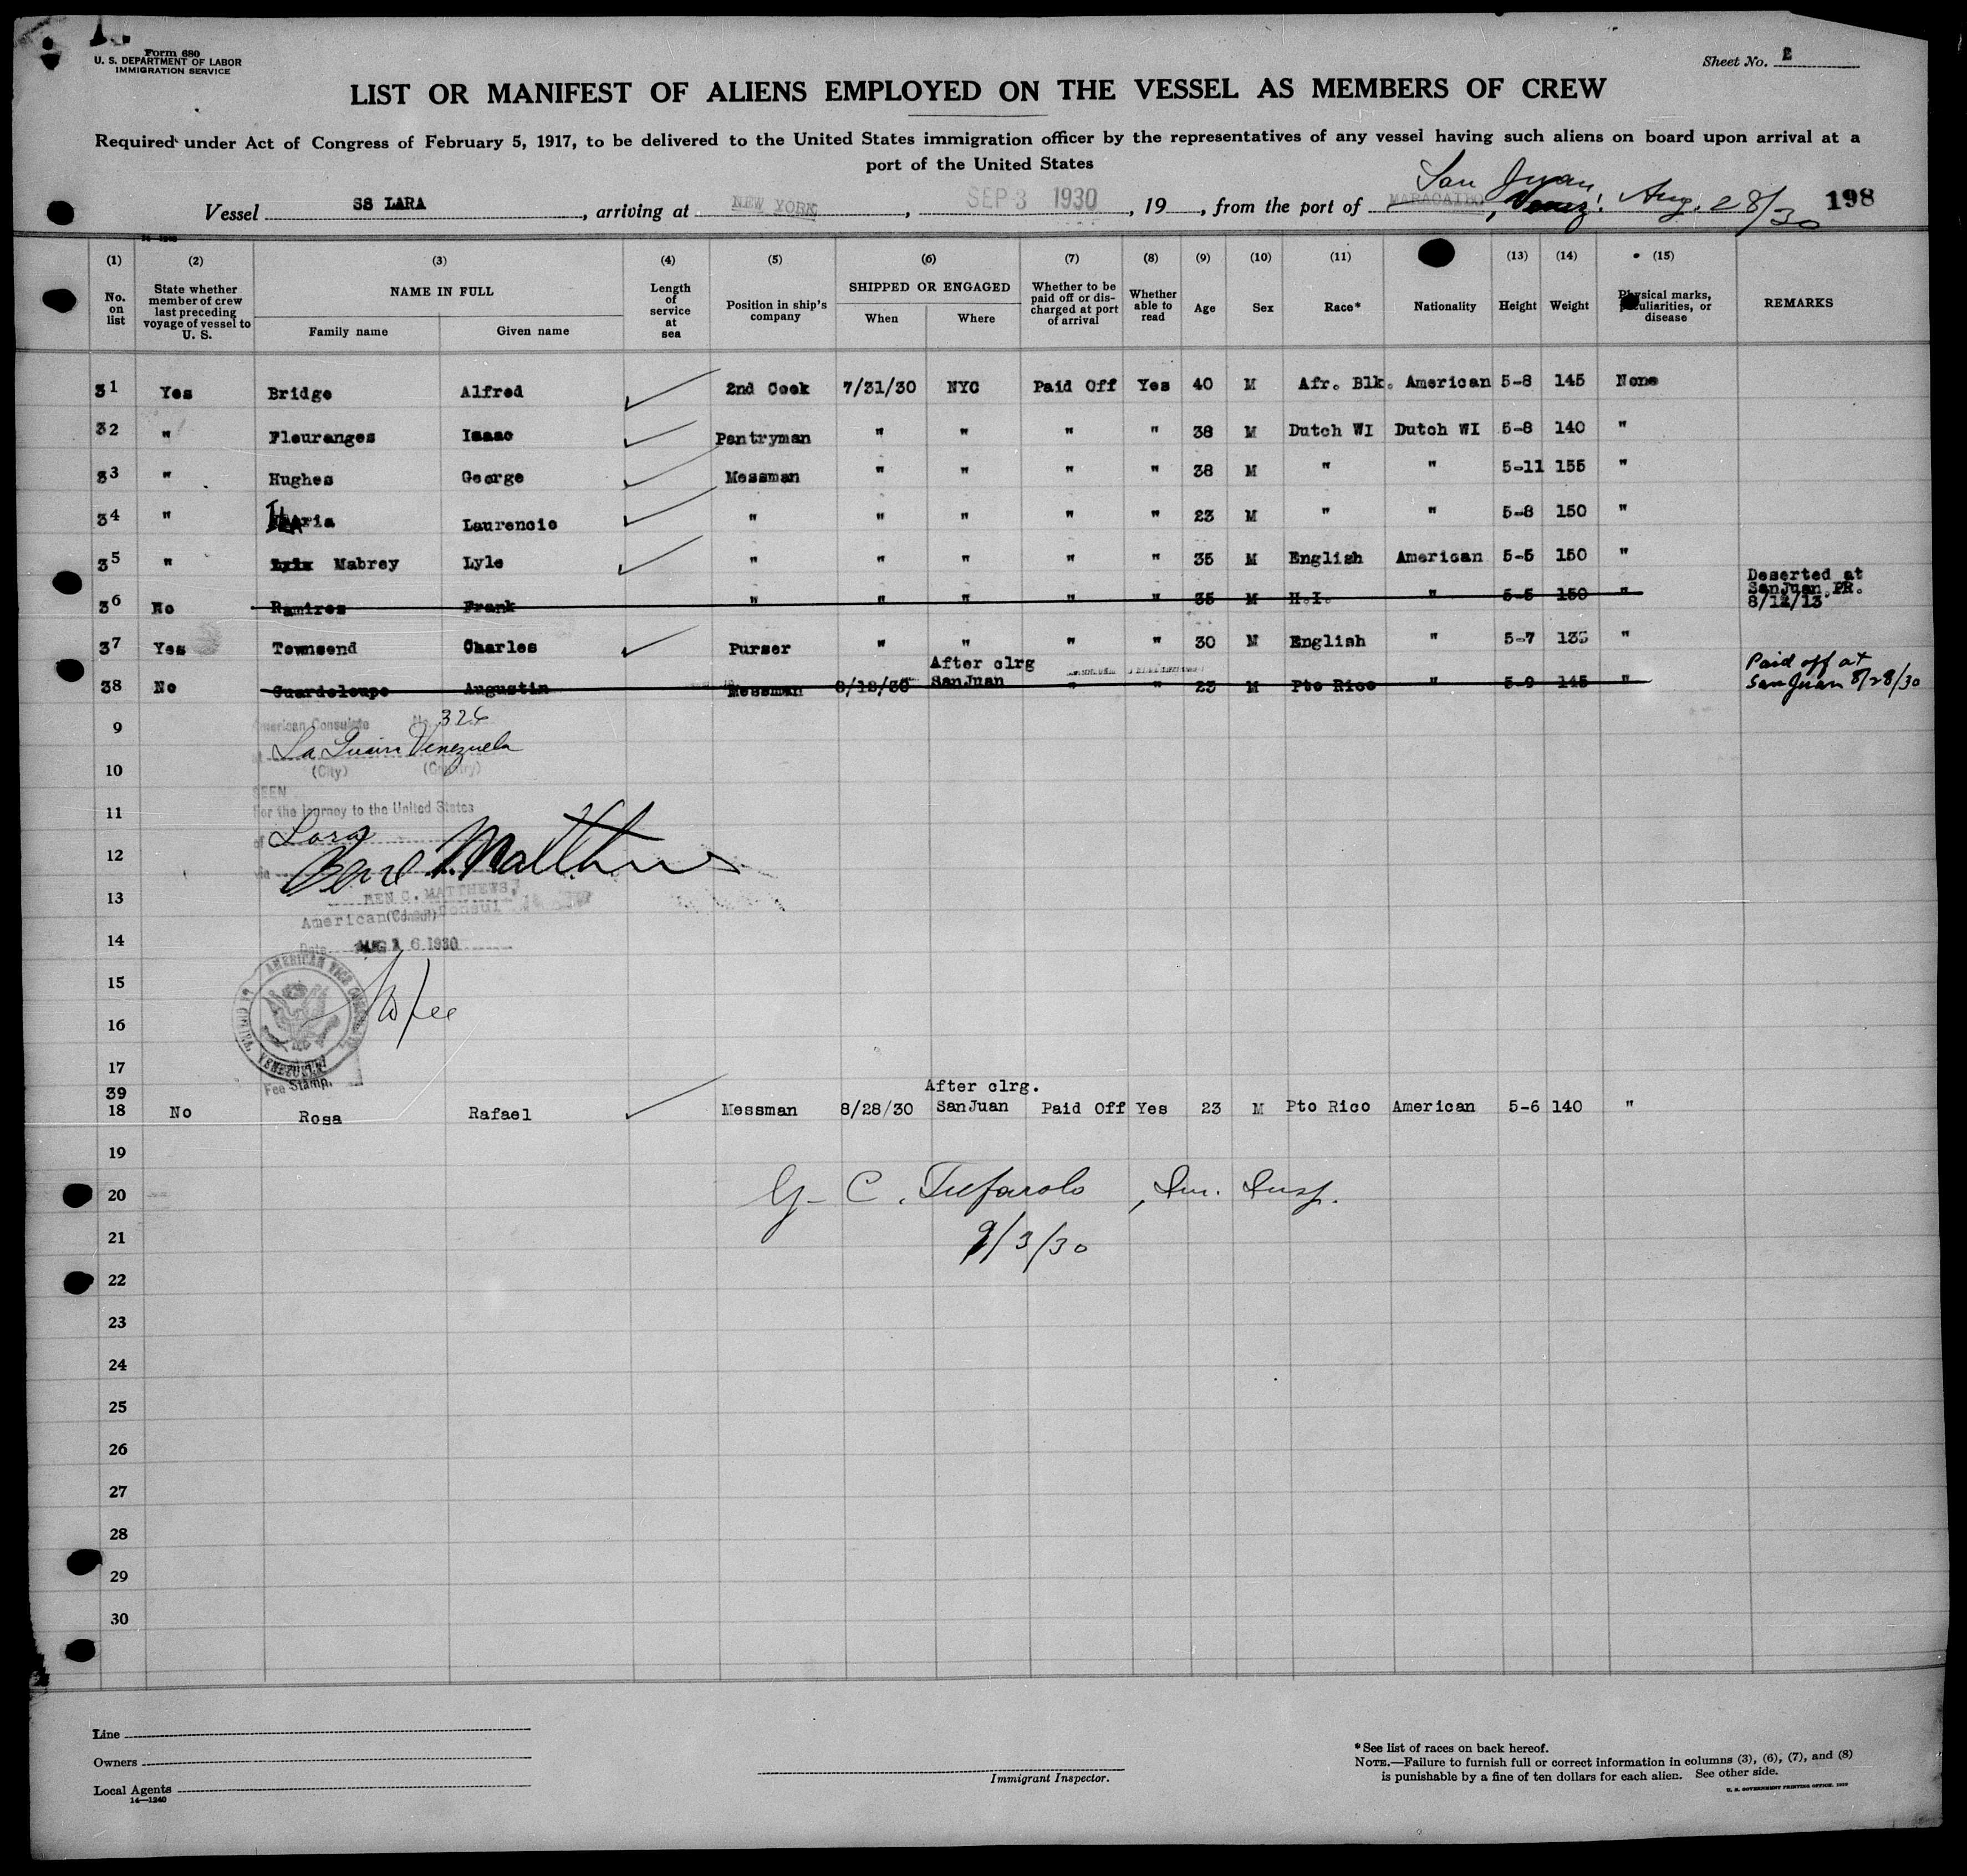 Form 680
U. S. DEPARTMENT OF LABOR
IMMIGRATION SERVICE
Sheet No. 2
LIST OR MANIFEST OF ALIENS EMPLOYED ON THE VESSEL AS MEMBERS OF CREW
Required under Act of Congress of February 5, 1917, to be delivered to the United States immigration officer by the representatives of any vessel having such aliens on board upon arrival at a
port of the United States
San Juan,
Vessel SS LARA, arriving at NEW YORK, SEP 3 1930, 19, from the port of MARACAIBO, Venez. Aug. 28/30 198
(1) (2) (3) (4) (5) (6) (7) (8) (9) (10) (11) (13) (14) (15)
No. on list
State whether member of crew last preceding voyage of vessel to U. S.
NAME IN FULL
Family name
Given name
Length of service at sea
Position in ship's company
SHIPPED OR ENGAGED
When
Where
Whether to be paid off or discharged at port of arrival
Whether able to read
Age
Sex
Race*
Nationality
Height
Weight
Physical marks, peculiarities, or disease
REMARKS
31 Yes Bridge Alfred 2nd Cook 7/31/30 NYC Paid Off Yes 40 M Afr. Blk. American 5-8 145 None
32 " Fleuranges Isaac Pantryman " " " " 38 M Dutch WI Dutch WI 5-8 140 "
33 " Hughes George Messman " " " " 38 M " " 5-11 155 "
34 " Laurencio " " " " " 23 M " " 5-8 150 "
35 " Mabrey Lyle " " " " " 35 M English American 5-5 150 "
36 No Ramires Frank " " " " " 35 M H.I. " 5-5 150 " Deserted at
SanJuan.PR.
8/12/13
37 Yes Townsend Charles Purser " " " " 30 M English " 5-7 135 "
After clrg
38 No Guardeloupe Augustin Messman 8/18/30 SanJuan " " 23 M Pto Rico " 5-9 145 " Paid off at
San Juan 8/28/30
9 American Consulate No. 326
La Guaira Venezuela
10 (City) (Country)
SEEN
11 For the journey to the United States
of Lara
12 via
Ben C. Matthews
13 BEN C. MATTHEWS,
American Consul
14 Date AUG 16 1930
15 AMERICAN VICE CONSULATE
LA GUAIRA, VENEZUELA
No fee
16
17
Fee Stamp.
After clrg.
39
18 No Rosa Rafael Messman 8/28/30 SanJuan Paid Off Yes 23 M Pto Rico American 5-6 140 "
19
20 G. C. Tufarolo, Im. Insp.
21 9/3/30
22
23
24
25
26
27
28
29
30
Line
Owners
Local Agents
14—1240
Immigrant Inspector.
*See list of races on back hereof.
NOTE.—Failure to furnish full or correct information in columns (3), (6), (7), and (8)
is punishable by a fine of ten dollars for each alien. See other side.
U. S. GOVERNMENT PRINTING OFFICE: 1929